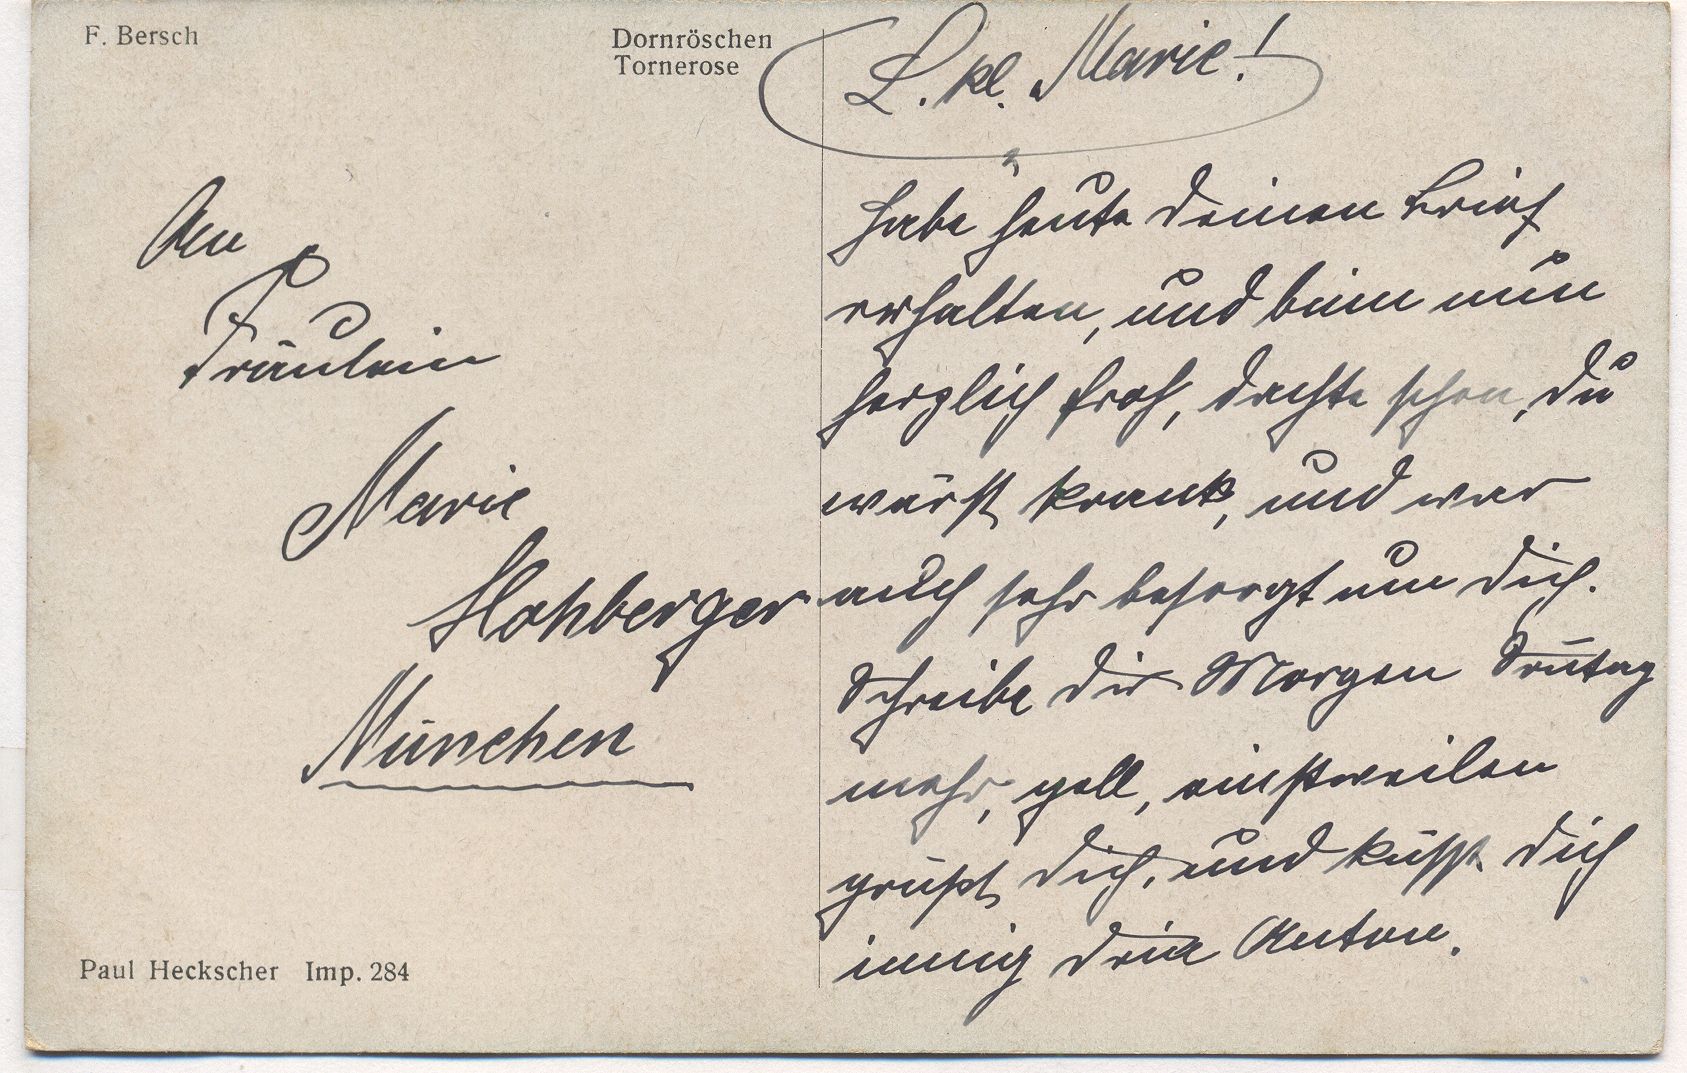 F. Bersch
Dornröschen
Tornerose
An
Fräulein
Marie
Hohberger
München
Paul Heckscher Imp. 284
L. kl. Marie!
Habe heute deinen Brief
erhalten, und binn nun
herzlich froh, dachte schon, du
wärst krank, und war
auch sehr besorgt um dich.
Schreibe dir Morgen
mehr, gell, einstweilen
grüßt dich, und küsst dich
innig dein Anton.